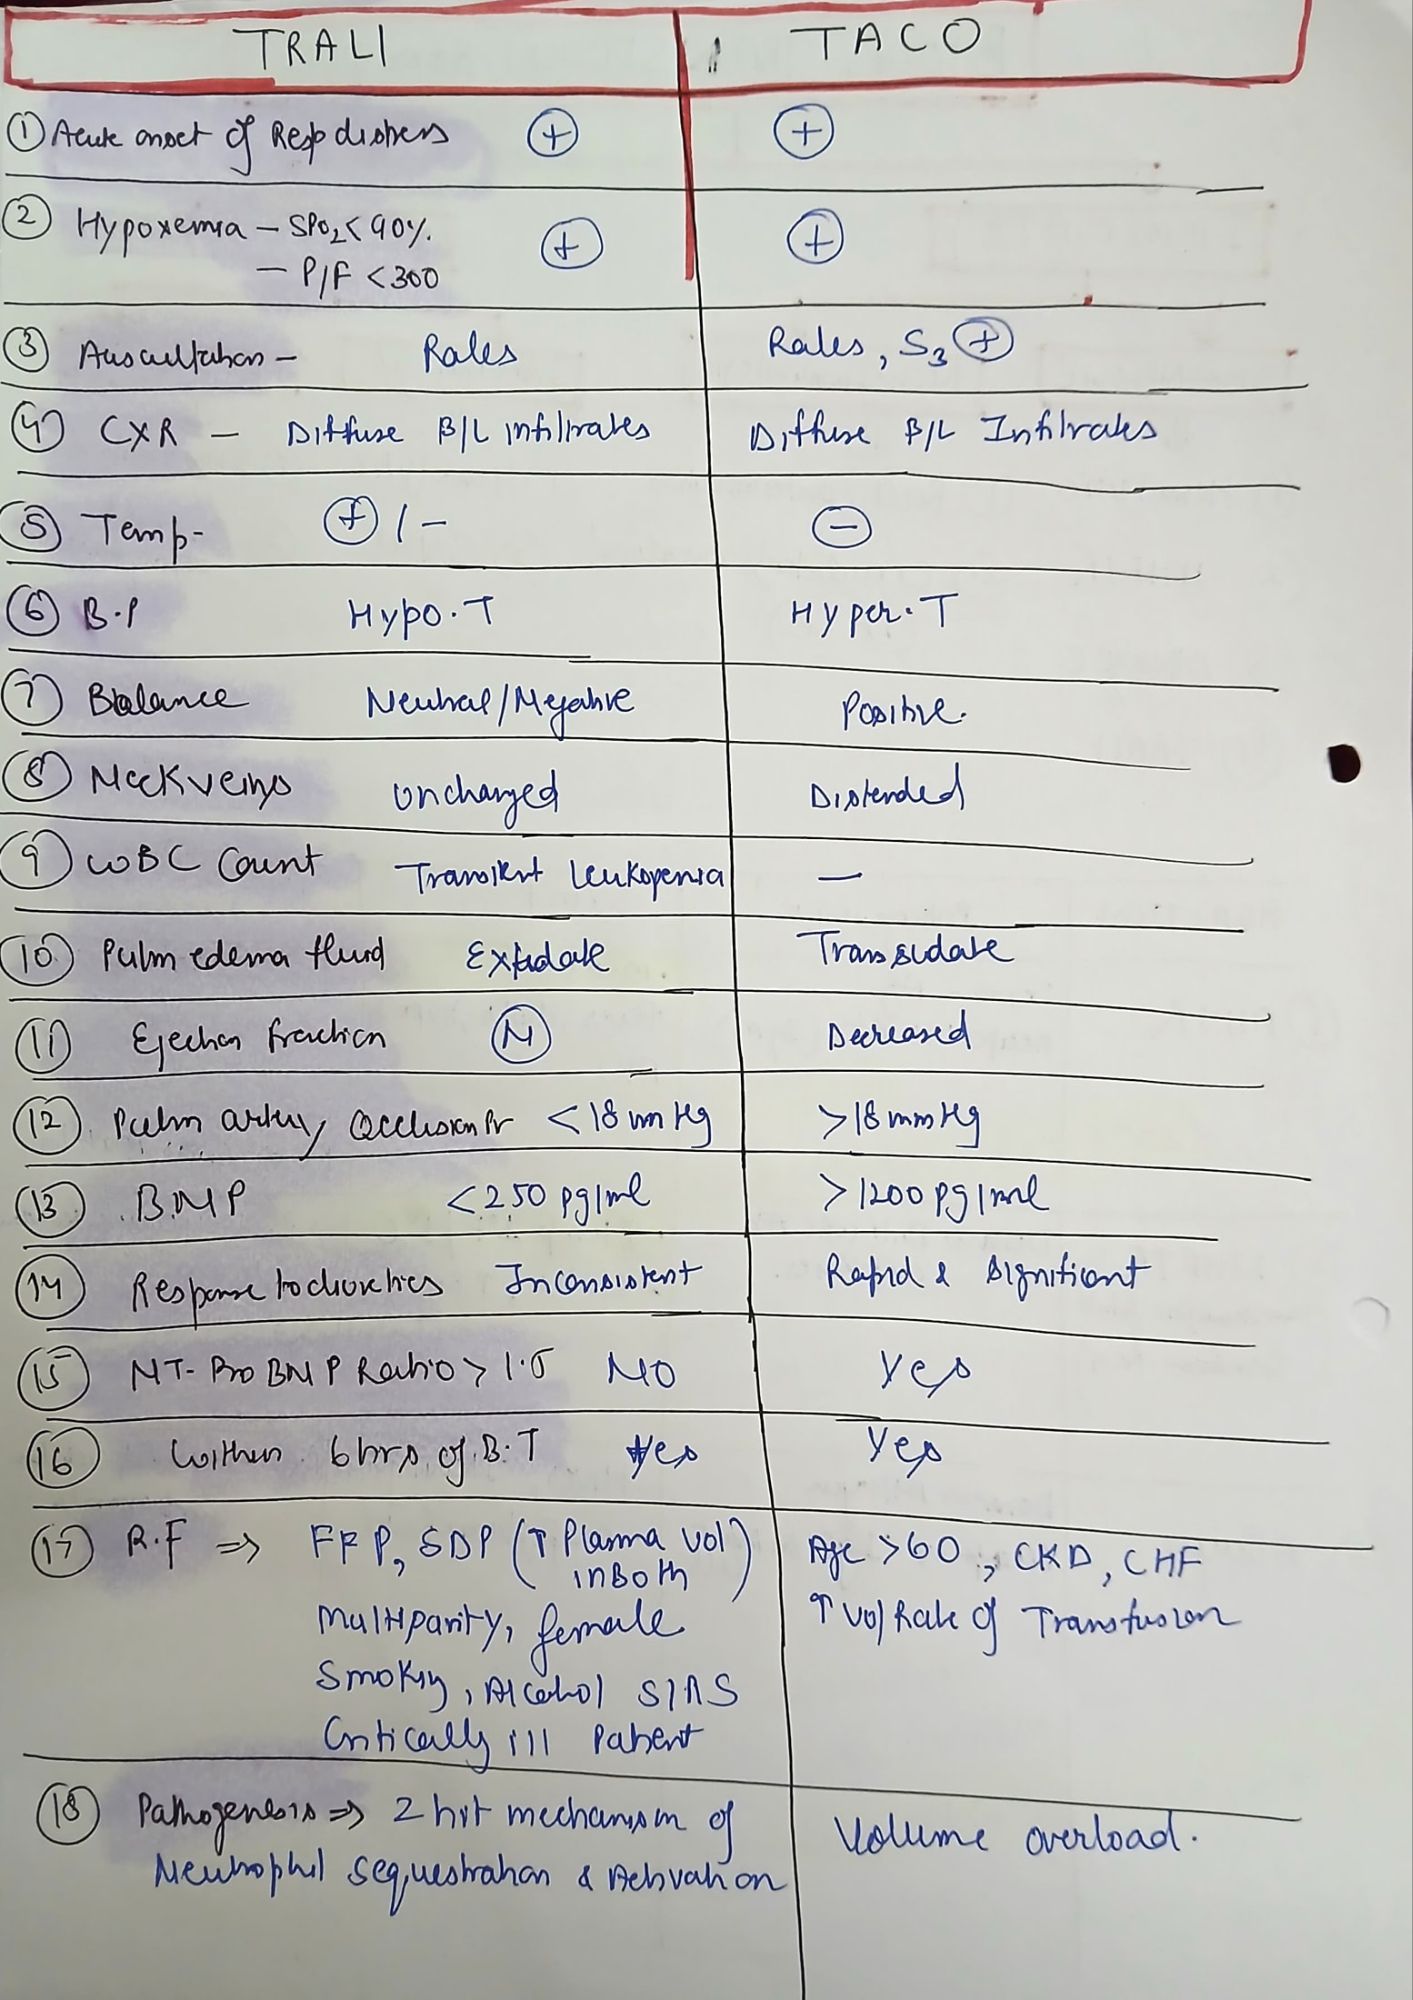 TRALI TACO
① Acute onset of Resp distress ⊕ ⊕
② Hypoxemia – SPO₂ < 90%. ⊕ ⊕
– P/F < 300
③ Auscultation – Rales Rales, S₃ ⊕
④ CXR – Diffuse B/L infiltrates Diffuse B/L Infiltrates
⑤ Temp- ⊕ / – ⊖
⑥ B.P Hypo.T Hyper.T
⑦ Balance Neutral/Negative Positive.
⑧ Neck veins Unchanged Distended
⑨ WBC Count Transient Leukopenia –
⑩ Pulm edema fluid Exudate Transudate
⑪ Ejection fraction Ⓝ Decreased
⑫ Pulm artery Occlusion Pr < 18 mm Hg > 18 mm Hg
⑬ BNP < 250 pg/ml > 1200 pg/ml
⑭ Response to diuretics Inconsistent Rapid & Significant
⑮ NT-Pro BNP Ratio > 1.5 NO Yes
⑯ Within 6 hrs of B.T Yes Yes
⑰ R.F ⇒ FFP, SDP (↑ Plasma Vol in Both) Age > 60, CKD, CHF
Multiparity, female ↑ Vol/Rate of Transfusion
Smoking, Alcohol SIRS
Critically ill Patient
⑱ Pathogenesis ⇒ 2 hit mechanism of Volume overload.
Neutrophil sequestration & Activation